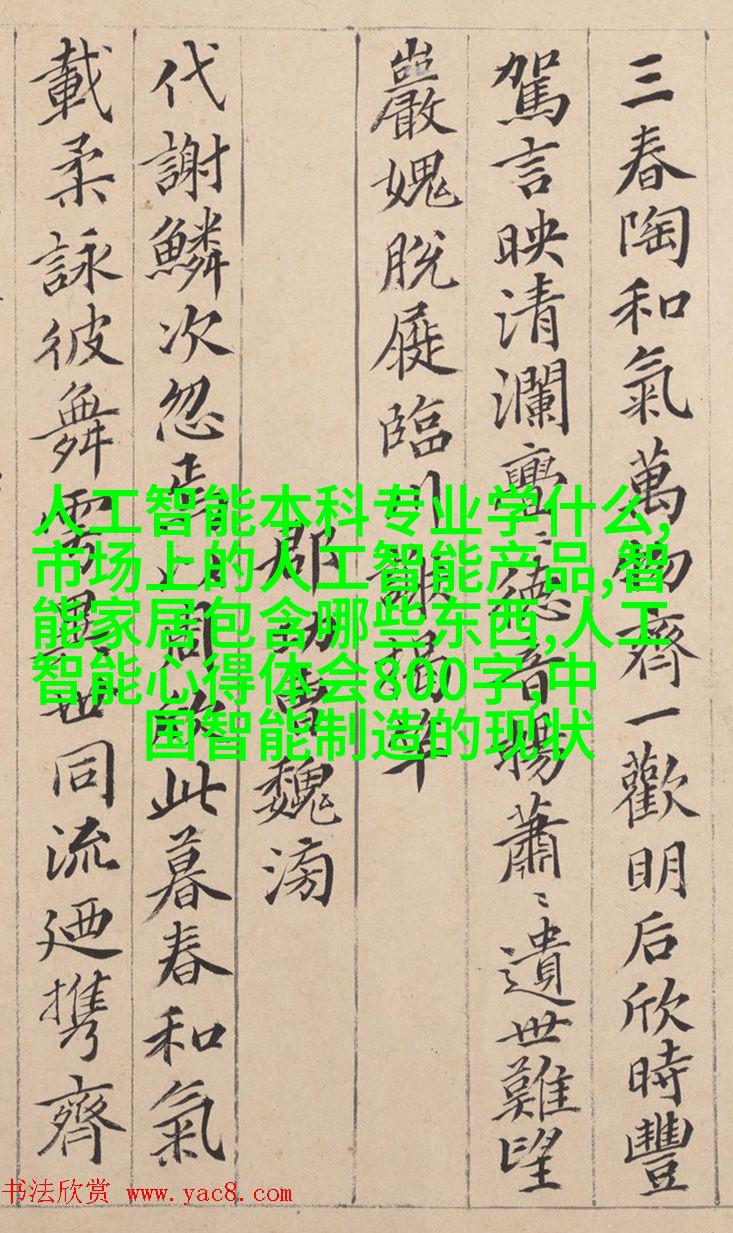 三春陶和氣萬物齊一歡明后欣時豐
駕言映清瀾亹〻德音暢蕭〻遺世難望
巖愧脫屣臨川謝揭竿
郡功曹魏滂
代謝鱗次忽焉以周欣此暮春和氣
載柔詠彼舞雩異世同流廼携齊
人工智能本科专业学什么,
市场上的人工智能产品,智
能家居包含哪些东西,人工
智能心得体会800字,中
国智能制造的现状
书法欣赏 www.yac8.com